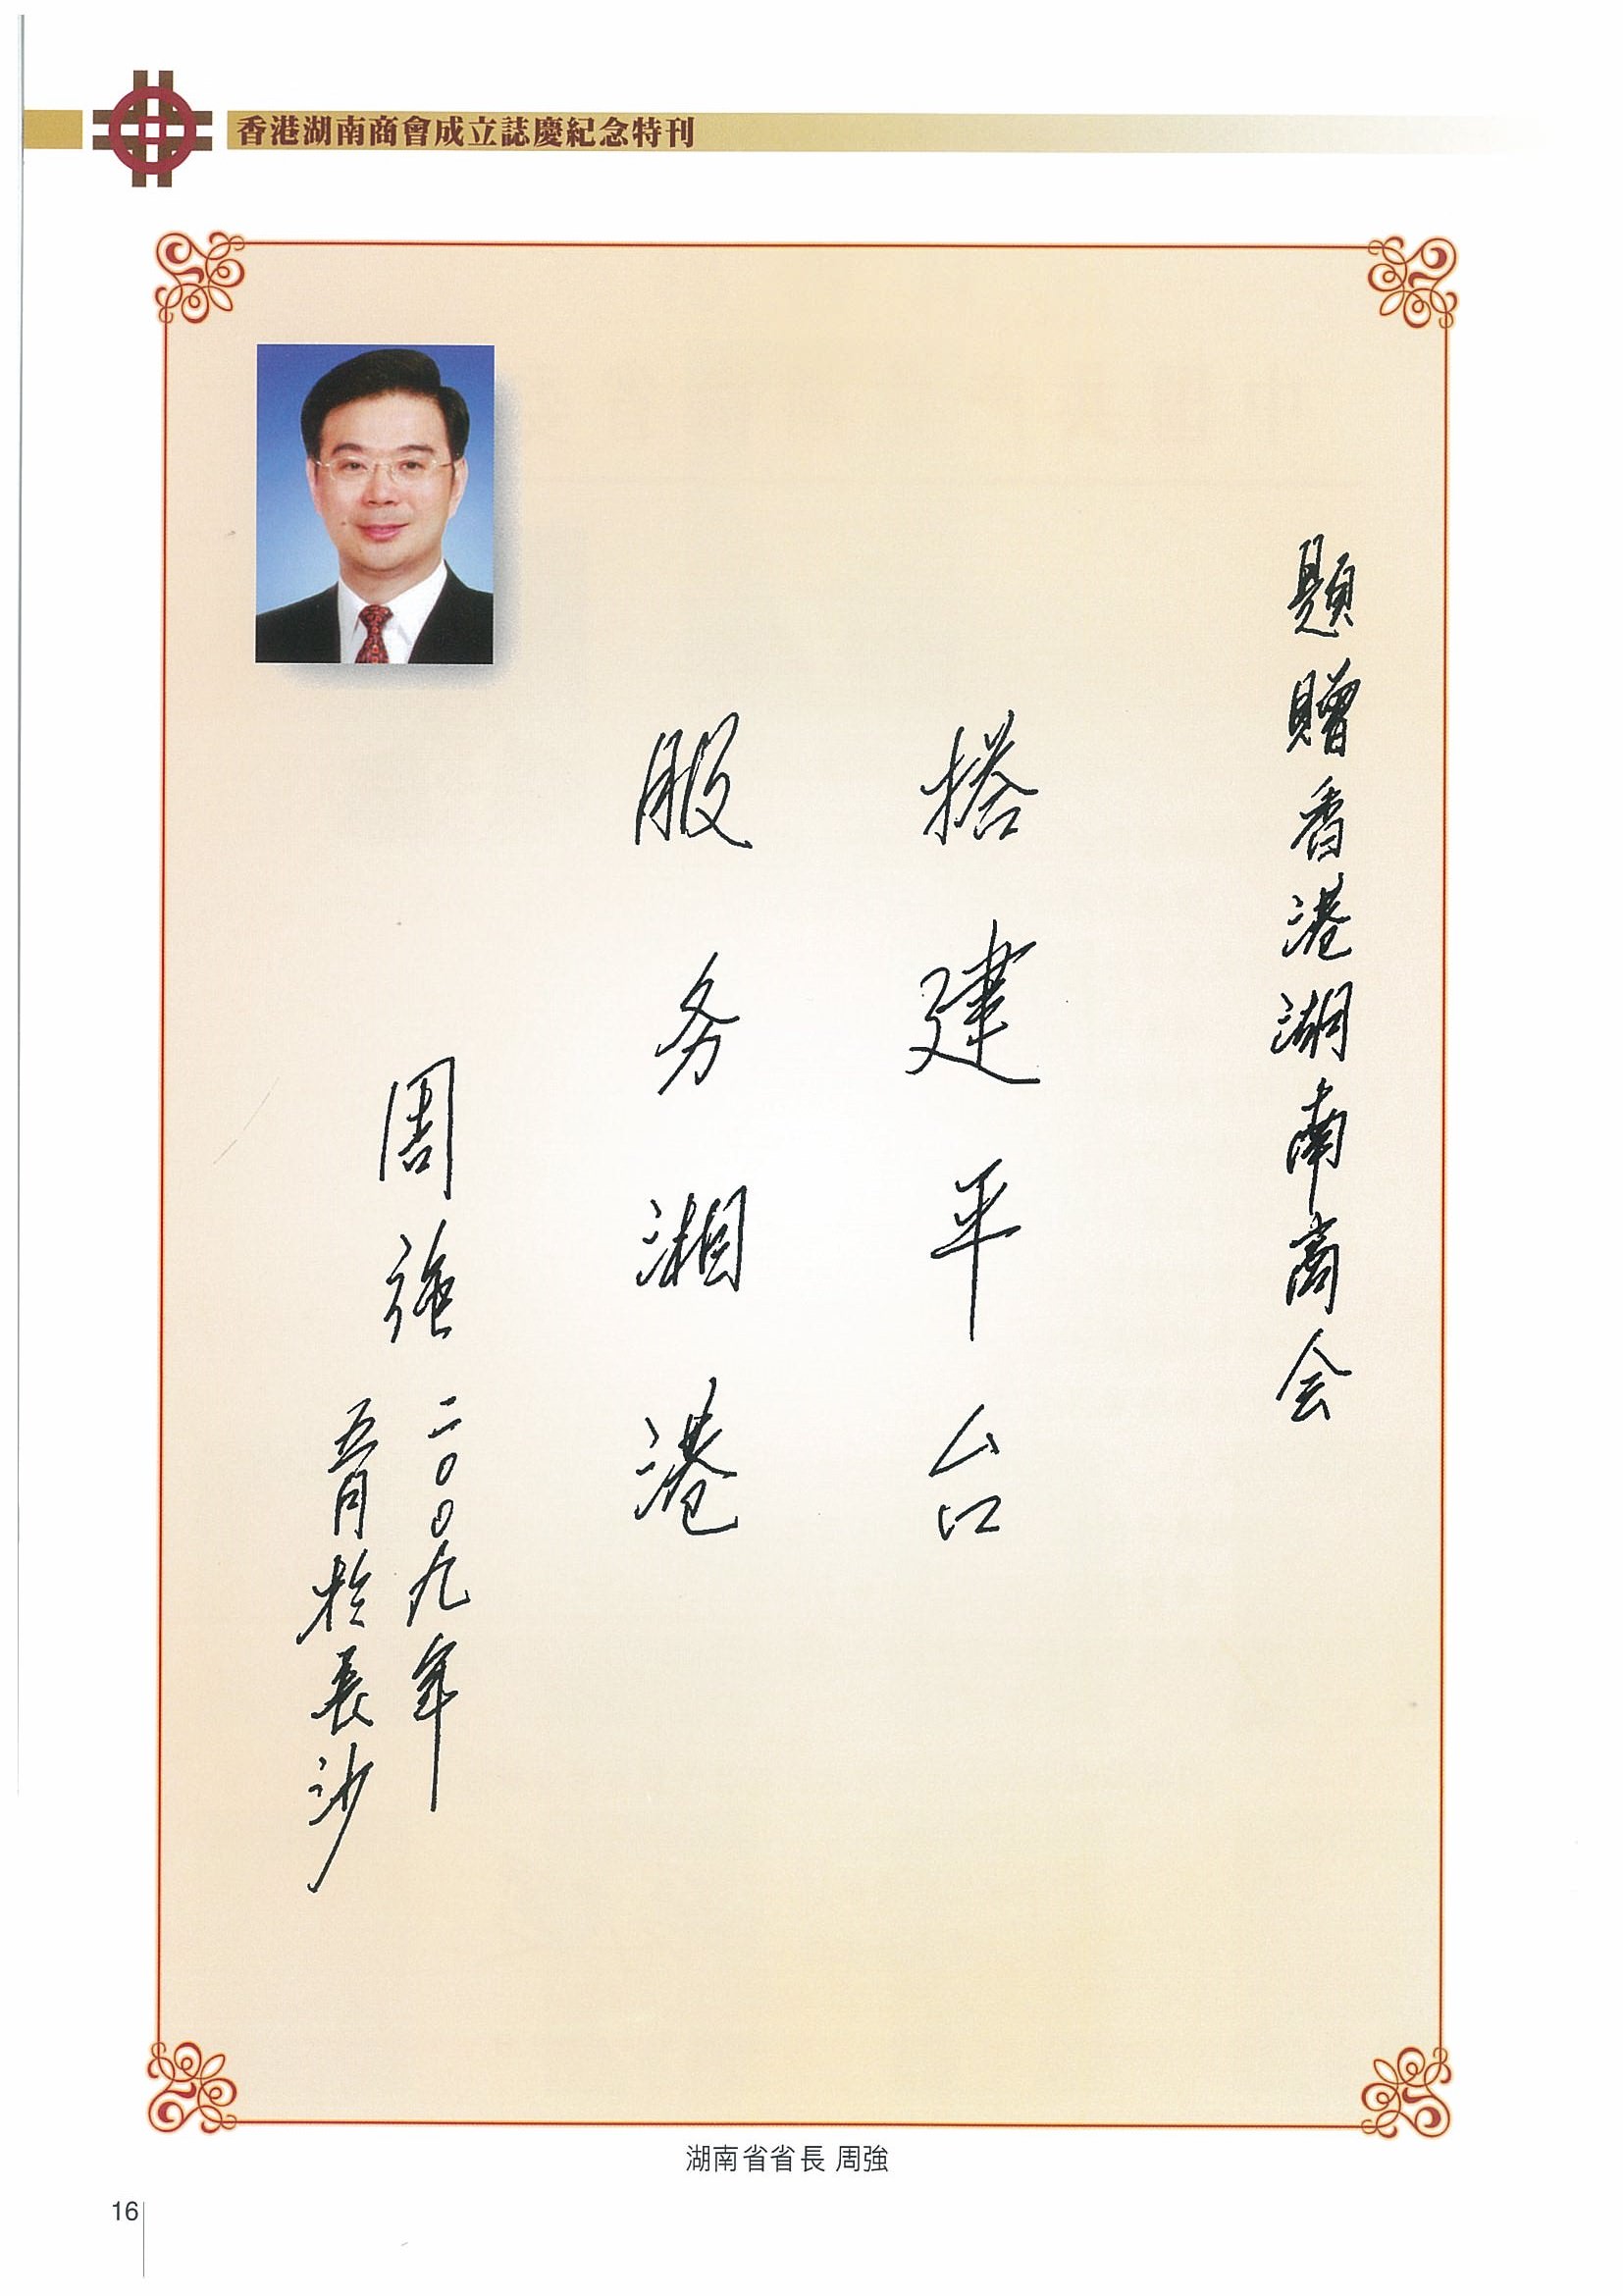 香港湖南商會成立誌慶紀念特刊
題贈香港湖南商会
搭建平台
服务湘港
周強
二00九年
五月於長沙
湖南省省長 周強
16